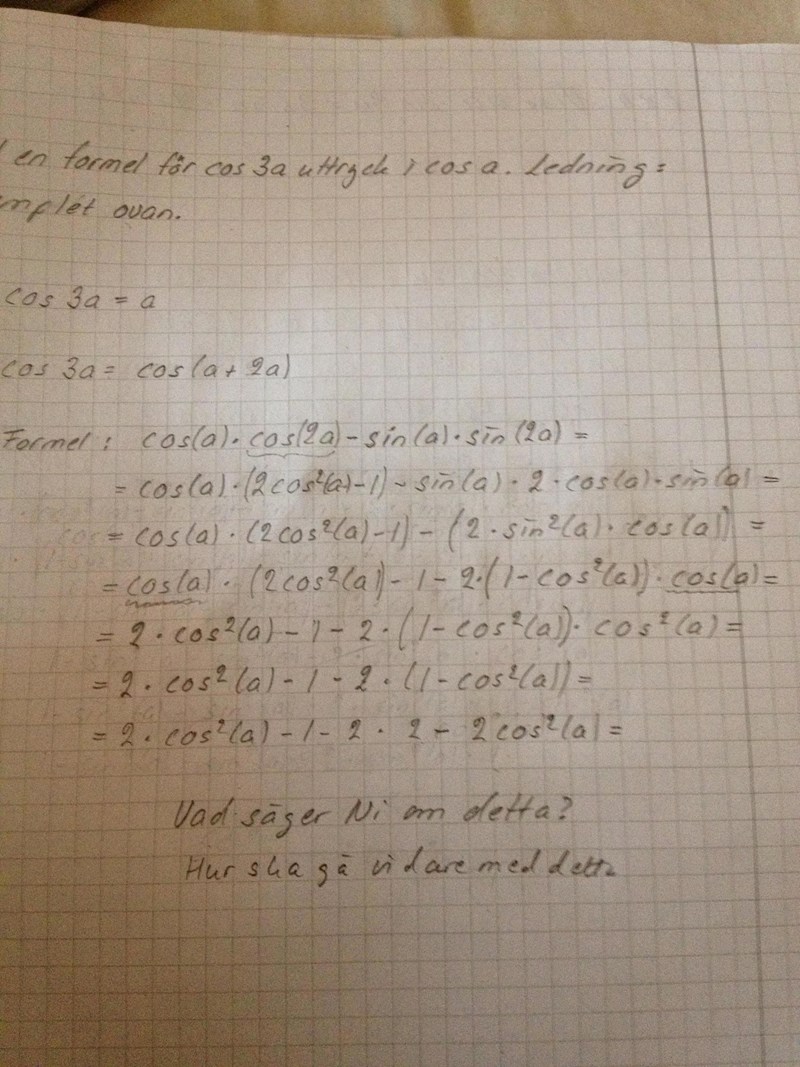 en formel för cos 3a uttryck i cos a. Ledning:
ovan.
cos 3a = a
cos 3a = cos(a + 2a)
Formel: cos(a)·cos(2a) - sin(a)·sin(2a) =
= cos(a)·(2cos²(a)-1) - sin(a)·2·cos(a)·sin(a) =
= cos(a)·(2cos²(a)-1) - (2·sin²(a)·cos(a)) =
= cos(a)·(2cos²(a)) - 1 - 2·(1-cos²(a))·cos(a) =
= 2·cos²(a) - 1 - 2·(1-cos²(a))·cos²(a) =
= 2·cos²(a) - 1 - 2·(1-cos²(a)) =
= 2·cos²(a) - 1 - 2·2 - 2cos²(a) =
Vad säger Ni om detta?
Hur ska gå vidare med detta